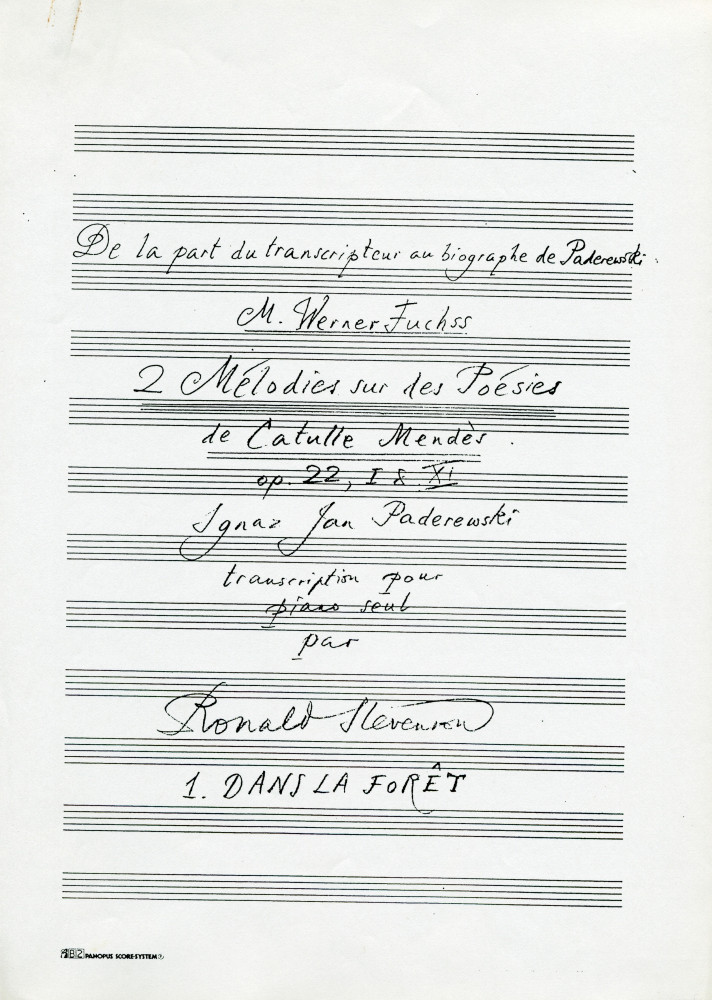 De la part du transcripteur au biographe de Paderewski
M. Werner Fuchss
2 Mélodies sur des Poésies
de Catulle Mendès
op. 22, I & XI
Ignaz Jan Paderewski
transcription pour
piano seul
par
Ronald Stevenson
1. DANS LA FORÊT
PANOPUS SCORE-SYSTEM